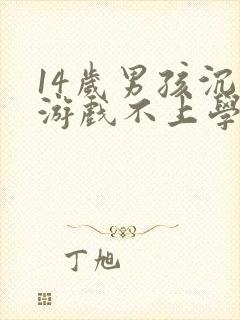 14歲男孩沉
游戲不上學
丁旭